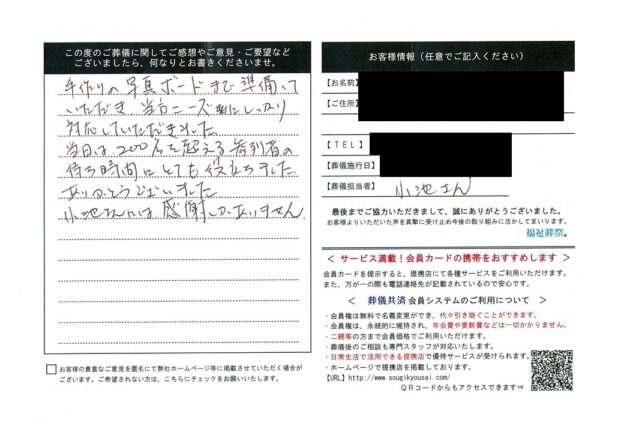 この度のご葬儀に関してご感想やご意見・ご要望など
ございましたら、何なりとお書きくださいませ。
手作りの写真ボードまで準備して
いただき、当方ニーズにしっかり
対応していただきました。
当日は200名を超える参列者の
待ち時間にとても役立ちました
ありがとうございました
小池さんには感謝しかありません
お客様の貴重なご意見を匿名にて弊社ホームページ等に掲載させていただく場合が
ございます。ご希望されない方は、こちらにチェックをお願いいたします。
お客様情報（任意でご記入ください）
【お名前】
【ご住所】
【TEL】
【葬儀施行日】
【葬儀担当者】 小池さん
最後までご協力いただきまして、誠にありがとうございました。
お客様よりいただいた声を真摯に受け止め今後の取り組みに活かしてまいります。
福祉葬祭。
＜ サービス満載！会員カードの携帯をおすすめします ＞
会員カードを提示すると、提携店にて各種サービスをご利用いただけます。
また、万が一の際も電話連絡先が記載されているので安心です。
＜ 葬儀共済 会員システムのご利用について ＞
・会員権は無料で名義変更ができ、代々引き継ぐことができます。
・会員権は、永続的に維持され、年会費や更新費などは一切かかりません。
・二親等の方まで会員価格でご利用いただけます。
・葬儀後のご相談も専門スタッフが対応いたします。
・日常生活で活用できる提携店で優待サービスが受けられます。
・ホームページで提携店を掲載しております。
【URL】http://www.sougikyousai.com/
QRコードからもアクセスできます⇒